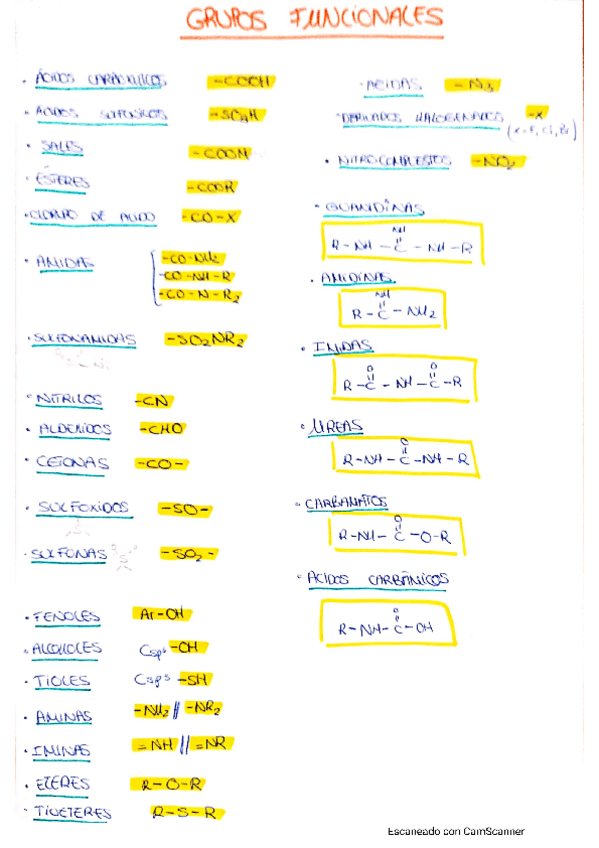 GRUPOS FUNCIONALES
· ÁCIDOS CARBOXÍLICOS -COOH
· ÁCIDOS SULFÓNICOS -SO3H
· SALES -COOM
· ÉSTERES -COOR
· CLORURO DE ACIDO -CO-X
· AMIDAS
-CO-NH2
-CO-NH-R
-CO-N-R2
· SULFONAMIDAS -SO2NR2
· NITRILOS -CN
· ALDEHIDOS -CHO
· CETONAS -CO-
· SULFOXIDOS -SO-
· SULFONAS -SO2-
· FENOLES Ar-OH
· ALCOHOLES Csp3-OH
· TIOLES Csp3-SH
· AMINAS -NH2 // -NR2
· IMINAS =NH // =NR
· ETERES R-O-R
· TIOETERES R-S-R
· -N3
· DERIVADOS HALOGENADOS -X
(X=F, Cl, Br)
· NITROCOMPUESTOS -NO2
· GUANIDINAS
NH
R-NH-C-NH-R
· AMIDINAS
NH
R-C-NH2
· IMIDAS
O O
R-C-NH-C-R
· UREAS
O
R-NH-C-NH-R
· CARBAMATOS
O
R-NH-C-O-R
· ACIDOS CARBÁMICOS
O
R-NH-C-OH
Escaneado con CamScanner